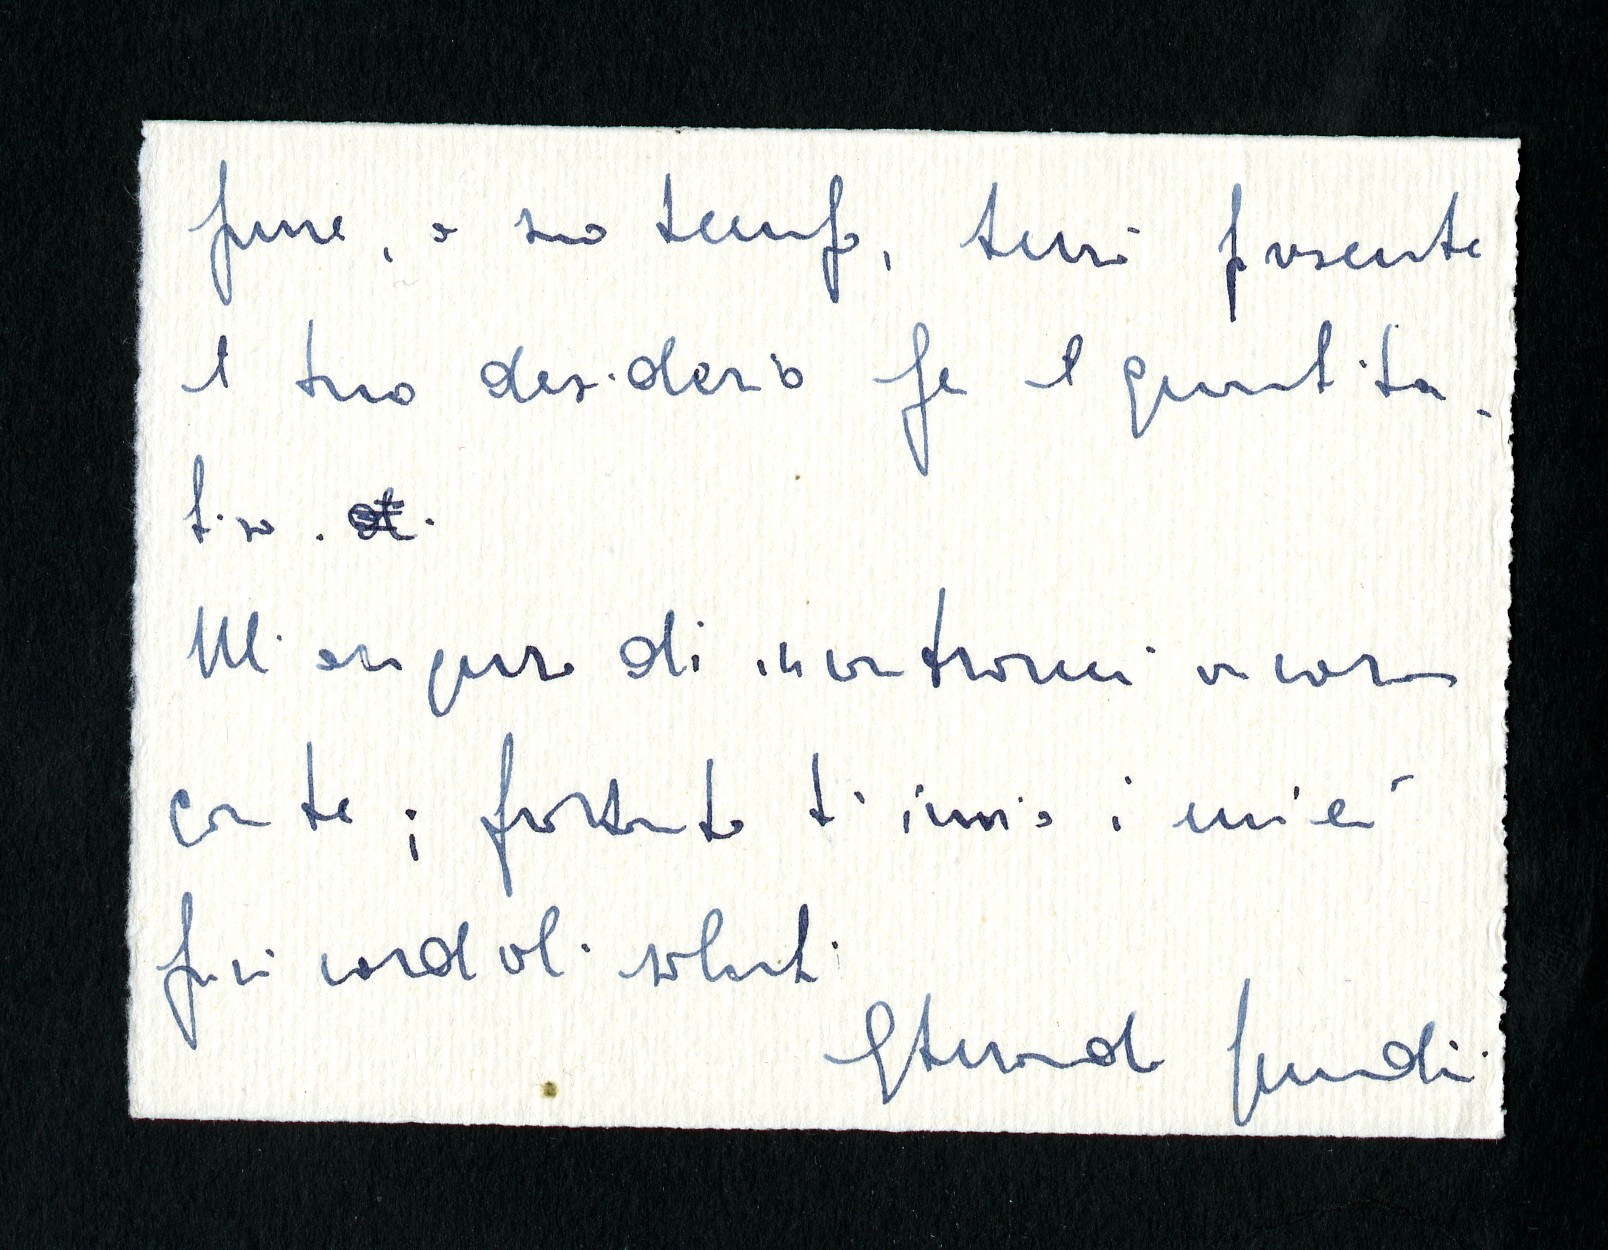 pure, a suo tempo, terrò presente
il tuo desiderio per il quantita-
tivo.
Mi auguro di incontrarci ancora
con te; pertanto ti invio i miei
più cordiali saluti